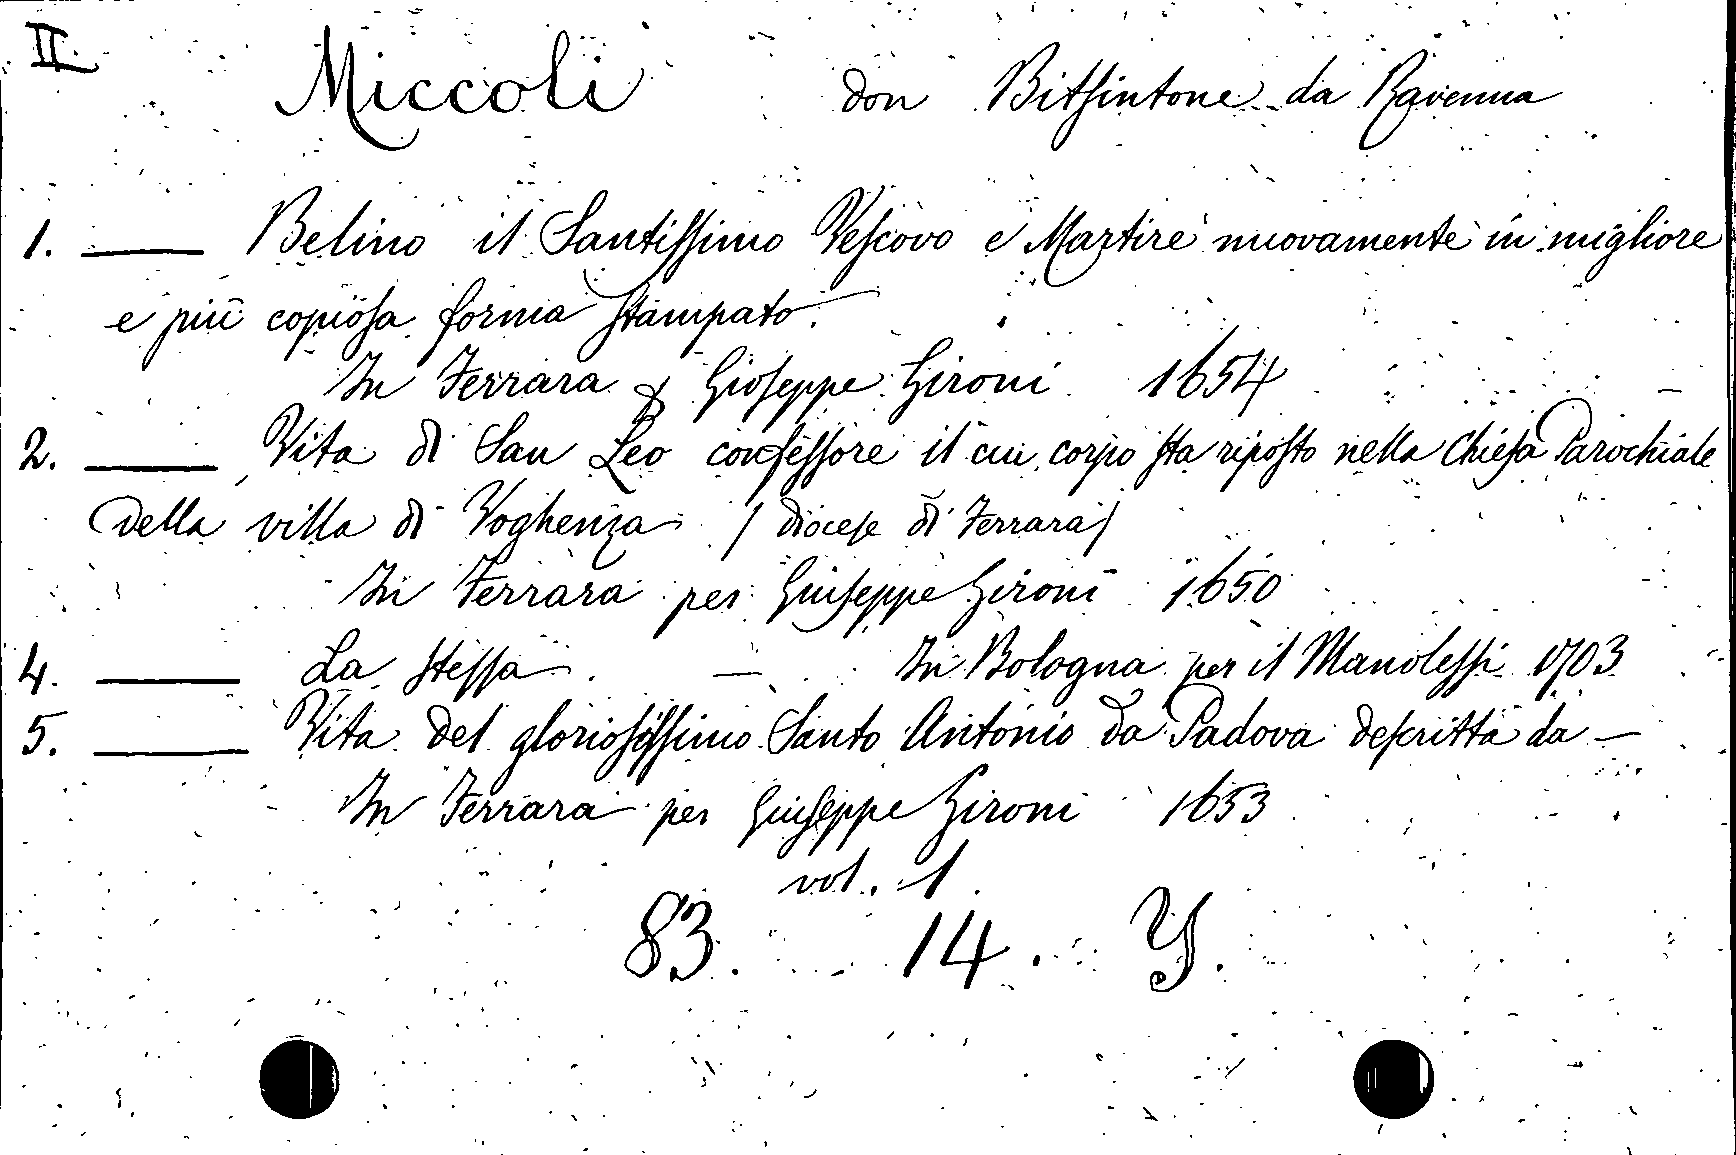 II.
Miccoli don Bitsintone da Ravenna
1. ____ Belino il Santissimo Vescovo e Martire nuovamente in migliore
e più copiosa forma stampato.
In Ferrara & Gioseppe Gironi 1654
2. ____ Vita di San Leo confessore il cui corpo sta riposto nella Chiesa Parochiale
della villa di Voghenza / diocese di Ferrara/
In Ferrara per Giuseppe Gironi 1650
4. ____ La stessa — In Bologna per il Manolessi 1703
5. ____ Vita del gloriosissimo Santo Antonio da Padova descritta da —
In Ferrara per Giuseppe Gironi 1653
vol. 1.
83. 14. Y.